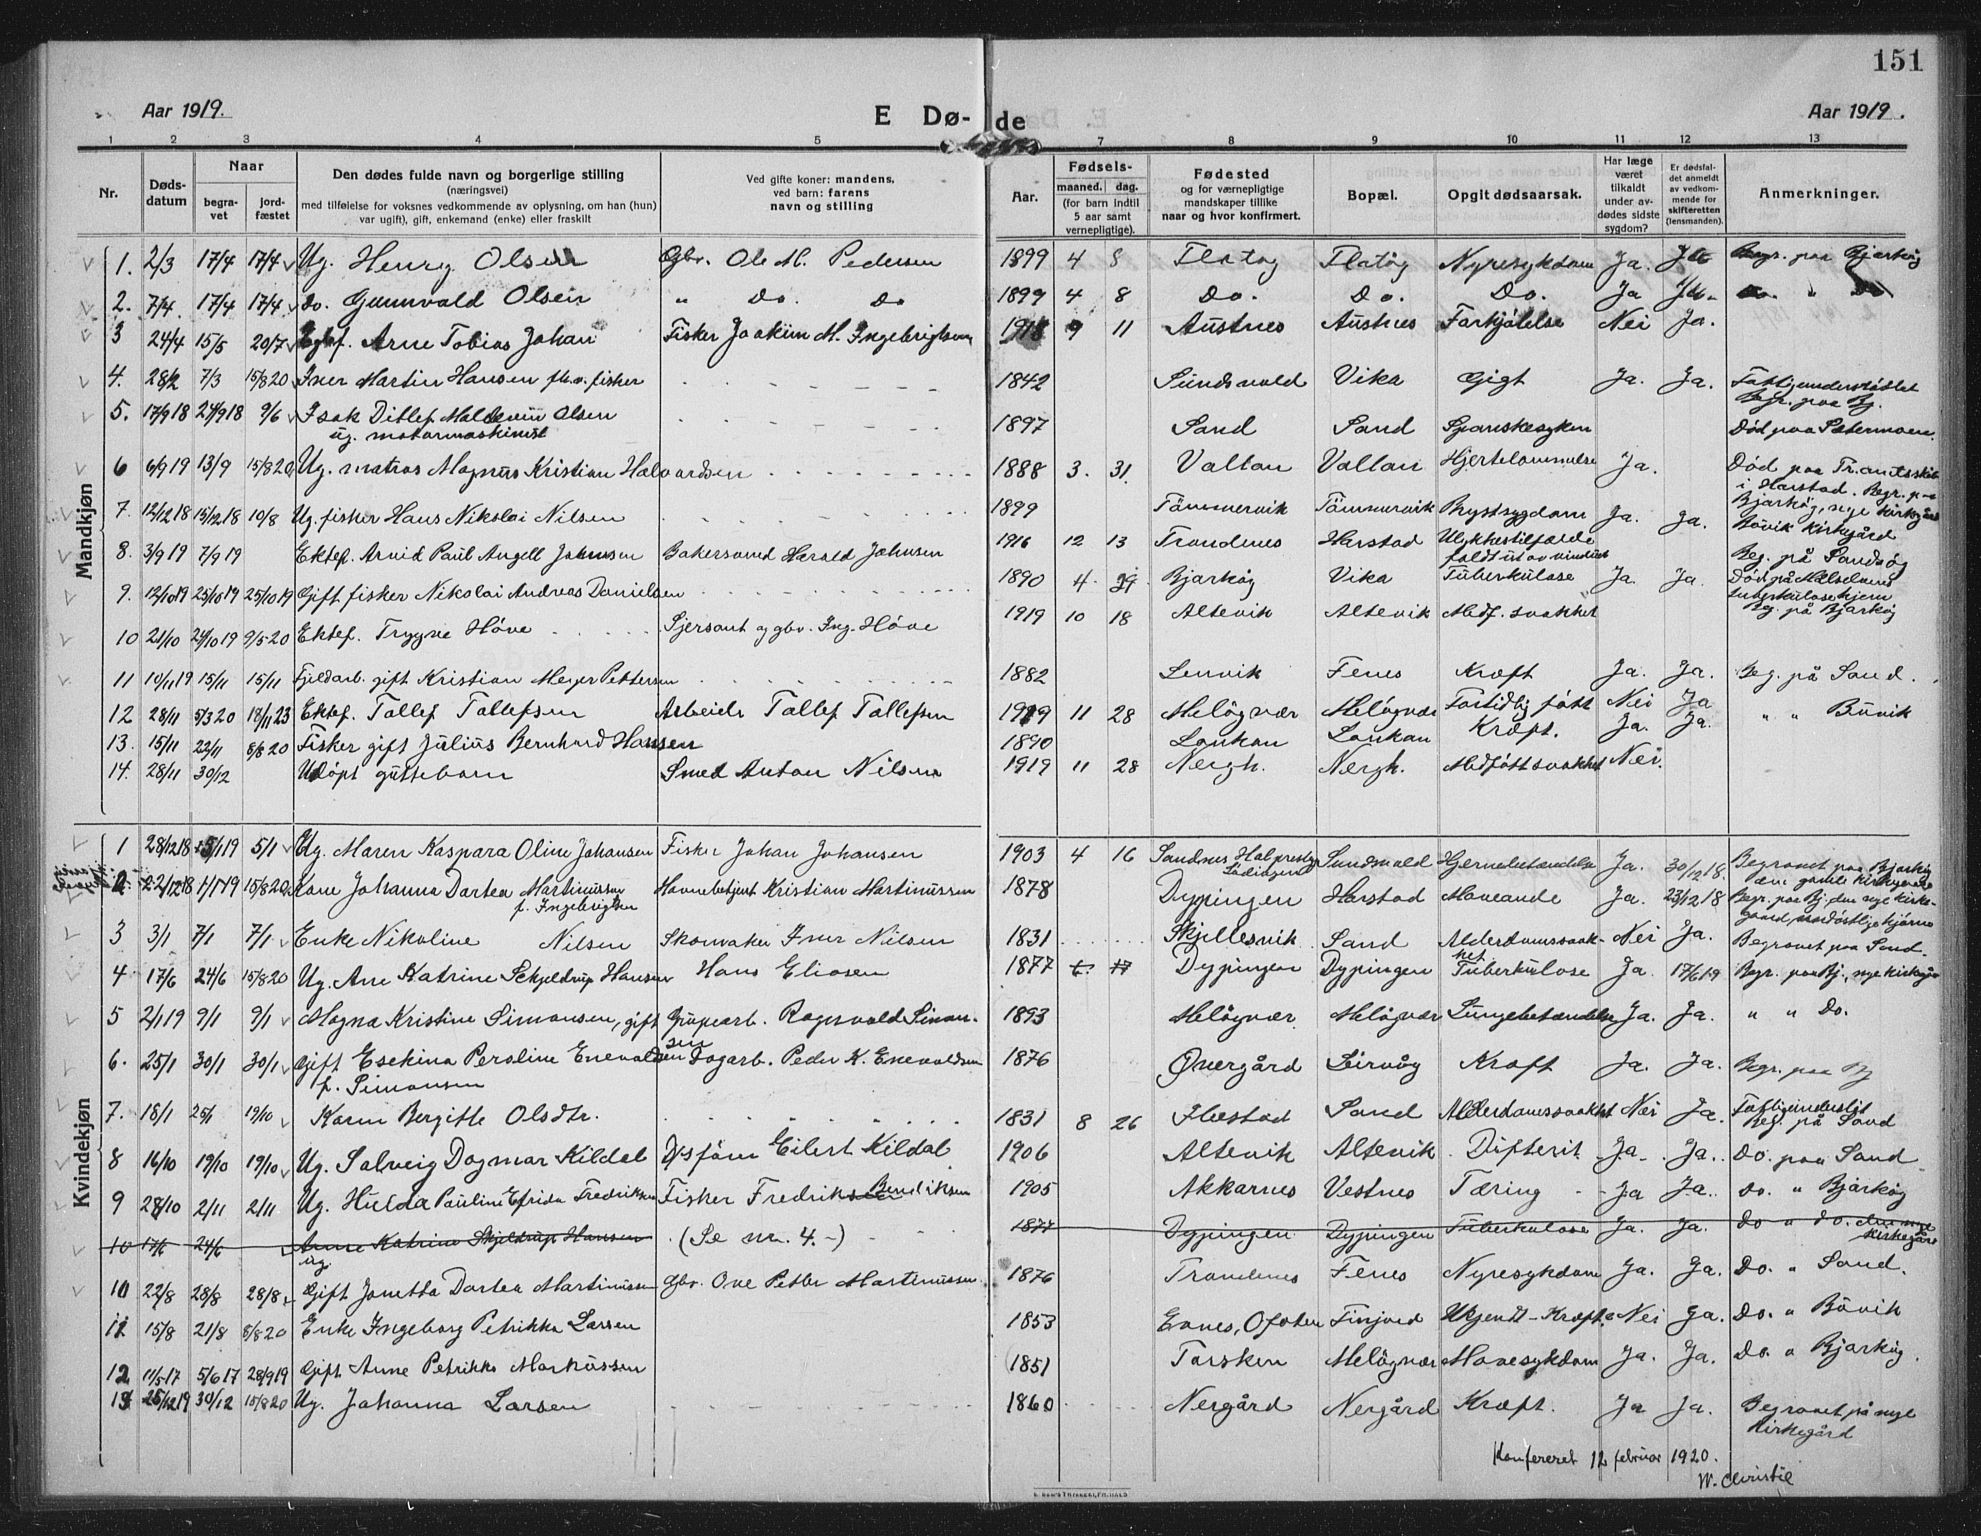 151
Aar 1919. E Dø- de Aar 1919.
1 2 3 4 5 7 8 9 10 11 12 13
Nr. Døds-datum Naar begra-vet jord-fæstet Den dødes fulde navn og borgerlige stilling (næringsvei) med tilføielse for voksnes vedkommende av oplysning, om han (hun) var ugift), gift, enkemand (enke) eller fraskilt Ved gifte koner: mandens, ved barn: farens navn og stilling Aar. Fødsels- maaned. dag. (for barn indtil 5 aar samt vernepligtige). Fødested og for værnepligtige mandskaper tillike naar og hvor konfirmert. Bopæl. Opgit dødsaarsak. Har læge været tilkaldt under av-dødes sidste sygdom? Er dødsfal-det anmeldt av vedkom-mende for skifteretten (lensmanden). Anmerkninger.
Mandkjøn
1. 2/3 17/4 17/4 Ug. Henry Olsen Gbr. Ole M. Pedersen 1899 4 8 Flatøy Flatøy Nyresykdom Ja. Ja Begr. paa Bjarkøy
2. 7/4 17/4 17/4 Do. Gunnvald Olsen " Do. Do 1899 4 8 Do. Do. Do. Ja Ja Do. " Do
3 24/4 15/5 20/7 Egtef. Arne Tobias Johan Fisker Joakim M. Ingebrigtsen 1918 9 11 Austnes Austnes Forkjølelse Nei Ja.
4. 28/2 7/3 15/8 20 Iver Martin Hansen fhv. fisker 1842 Sundsvold Vika Gigt Ja. Ja. Fattigunderstøttet Begr. paa Bj.
5. 17/9 18 24/9 18 9/6 Isak Ditlef Olsen ug. motormaskinist 1897 Sand Sand Spanskesyken Død paa Setermoen.
6 6/9 19 13/9 15/8 20 Ug. matros Magnus Kristian Halvardsen 1888 3. 31. Vollan Vollan Hjertelammelse Ja. Død paa Tr. amtssykeh. i Harstad. Begr. paa Bjarkøy, nye kirkegård
7. 12/12 18 15/12 18 10/8 Ug. fisker Hans Nikolai Nilsen 1899 Tømmervik Tømmervik Brystsygdom Ja. Ja. Bövik Kirkegård
8. 3/9 19 7/9 19 Ektef. Arvid Paul Angell Johnsen Bakersvend Harald Johnsen 1916 12 13 Trondenes Harstad Ulykkestilfælde faldt ut av vinduet Beg. på Sandsøy
9. 12/10 19 25/10 19 25/10 19 Gift fisker Nikolai Andreas Danielsen 1890 4. 29. Bjarkøy Vika Tuberkulose Ja. Ja. Død på Målselvens tuberkulosehjem Beg. på Bjarkøy
10 21/10 29/10 19 9/5-20 Ektef. Trygve Höve Sjersant og gbr. Ing. Höve 1919 10 18 Altevik Altevik Medf. svakhet
11 10/11 19 15/11 15/11 Fjeldarb. gift Kristian Meyer Pettersen 1882 Lenvik Fenes Kræft Ja. Ja. Beg. på Sand.
12 28/11 5/3 20 18/11 23 Ektef. Tollef Tollefsen Arbeider Tollef Tollefsen 1919 11 28 Meløyvær Meløyvær Fortidlig født Nei Ja " " Bövik
13. 15/11 22/11 8/8 20 Fisker gift Julius Bernhard Hansen 1890 Lonkan Lonkan Kræft. Ja. Ja.
14. 28/11 30/12 Udöpt guttebarn Smed Anton Nilsen 1919 11 28 Nergh. Nergh. Medføtt svakhet Nei.
Kvindekjøn
1 28/12 18 5/1 19 5/1 Ug. Maren Kaspara Oline Johansen Fisker Johan Johansen 1903 4 16 Sandnes Hol prestegj. Lødingen Sundsvold Hjernebetændelse Ja. 30/12 18. Begravet paa Bjarkøy den gamle kirkegård
2 22/12 18 1/1 19 15/8 20 Kone Johanna Dortea Martinussen f. Ingebrigtsen Havnebetjent Kristian Martinussen 1878 Dypingen Harstad Mavеonde Ja. 23/12 18 Begr. paa Bj, den nye kirke-gaard, nordöstlige hjörne
3 3/1 7/1 7/1 Enke Nikoline Nilsen Skomaker Iver Nilsen 1831 Skjellesvik Sand Alderdomssvak-het Nei Ja. Begravet paa Sand.
4 17/6 24/6 15/8 20 Ug. Ane Katrine Schjeldrup Hansen Hans Eliasen 1877 6. 17 Dypingen Dypingen Tuberkulose Ja. 17/6 19 Begr. paa Bj., nye kirkegår
5 2/1 19 9/1 9/1 Magna Kristine Simonsen, gift Grubearb. Ragnvald Simonsen 1893 Meløyvær Meløyvær Lungebetændelse Ja. Ja. " " Do.
6. 25/1 30/1 30/1 Gift Esekina Peroline Enevoldsen f. Simonsen Dagarb. Peder K. Enevoldsen 1876 Øvergård Leirvåg Kræft Ja. Ja. Begr. paa Bj
7. 18/1 25/1 19/10 Karen Bergitte Olsdtr. 1831 8 26 Flæstad Sand Alderdomssvakhet Nei Ja. Fattigunderst. Beg. på Sand
8 16/10 19/10 19/10 Ug. Solveig Dagmar Kildal D/sförer Eilert Kildal 1906 Altevik Altevik Difterit Ja. Ja. Do. paa Sand
9 28/10 2/11 2/11 Ug. Hulda Pauline Efrida Fredriksen Fisker Fredrik Bendiksen 1905 Akkarnes Vestnes Tæring Ja Ja. Do. " Bjarkøy
10 17/6 24/6 Anne Katrine Skjeldrup Hansen ug. (Se nr. 4.-) 1877 Dypingen Dypingen Tuberkulose Ja. Ja. Do " Do. den nye kirkegård
10 22/8 28/8 28/8 Gift Jonetta Dortea Martinussen Gbr. Ove Petter Martinussen 1876 Trondenes Fenes Nyresykdom Ja. Ja. Do. " Sand.
11 15/8 21/8 8/8 20 Enke Ingeborg Petrikka Larsen 1853 Evnes, Ofoten Finjord Ukjendt-Kræft? Nei Ja. Do. " Bövik
12 11/5-17 5/6 17 28/9 19 Gift Anne Petrikke Markussen 1851 Torsken Meløyvær Mavesykdom Ja. Ja. Do. " Bjarkøy.
13 25/12 19 30/12 15/8 20 Ug. Johanna Larsen 1860 Nergård Nergård Kræft. Ja Ja. Begravet på nye kirkegård
Konfereret 12 februar 1920.
W. Christie